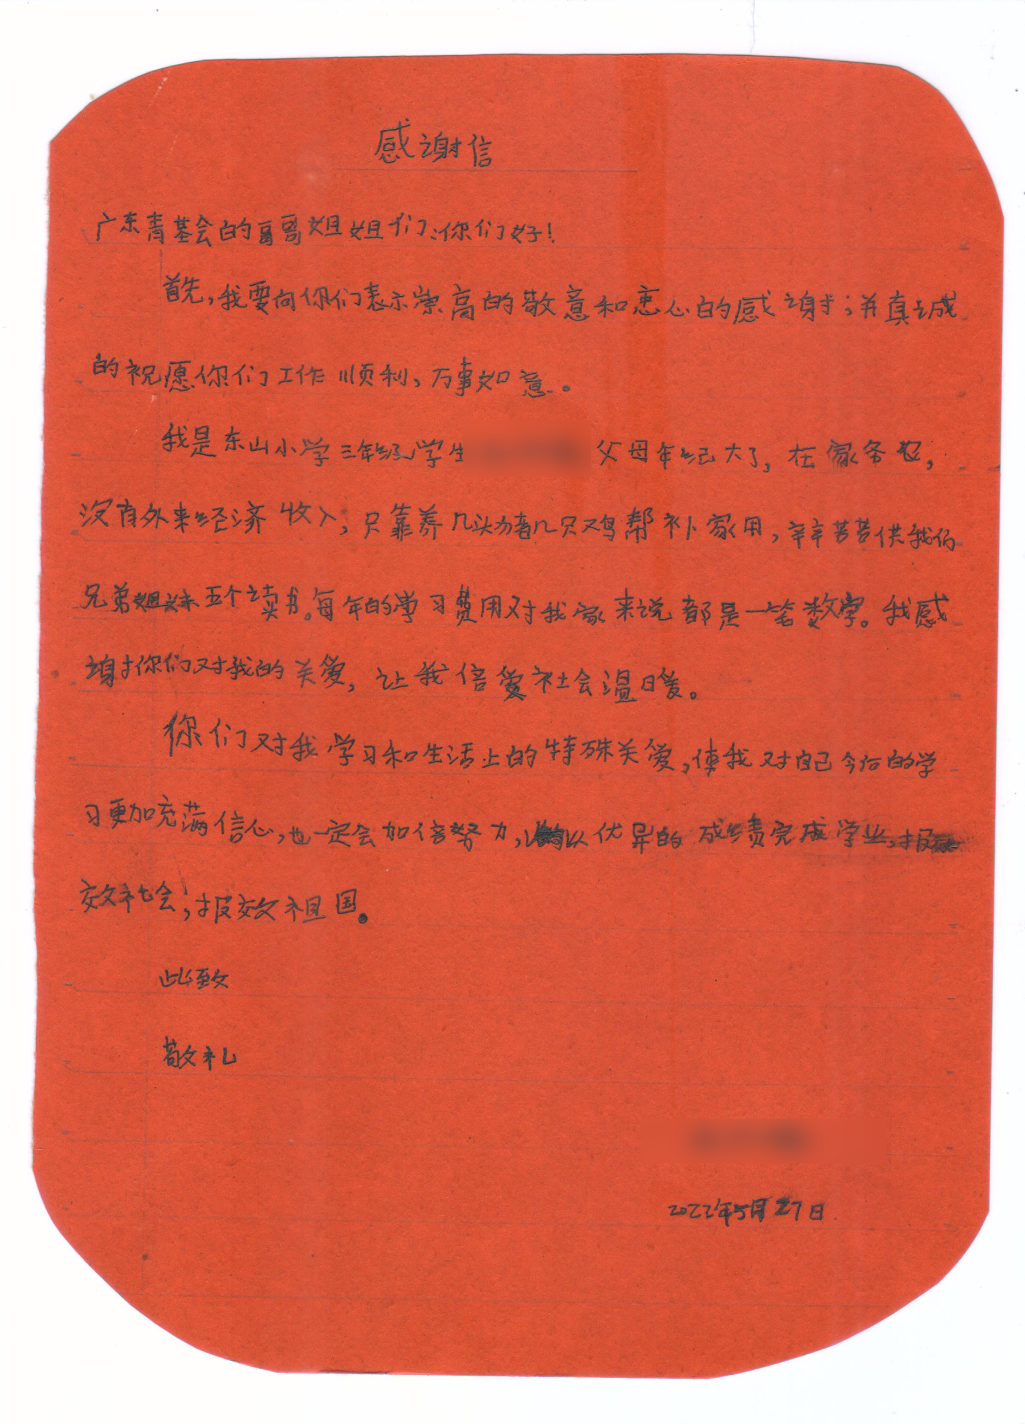 感谢信
广东青基会的哥哥姐姐们:你们好!
首先,我要向你们表示崇高的敬意和衷心的感谢;并真诚
的祝愿你们工作顺利,万事如意。
我是东山小学三年级学生 父母年纪大了,在家务农,
没有外来经济收入,只靠养几头猪几只鸡帮补家用,辛辛苦苦供我们
兄弟姐妹五个读书。每年的学习费用对我家来说都是一笔数字。我感
谢你们对我的关爱,让我倍爱社会温暖。
你们对我学习和生活上的特殊关爱,使我对自己今后的学
习更加充满信心,也一定会加倍努力,以优异的成绩完成学业,报
效社会,报效祖国。
此致
敬礼
2022年5月27日